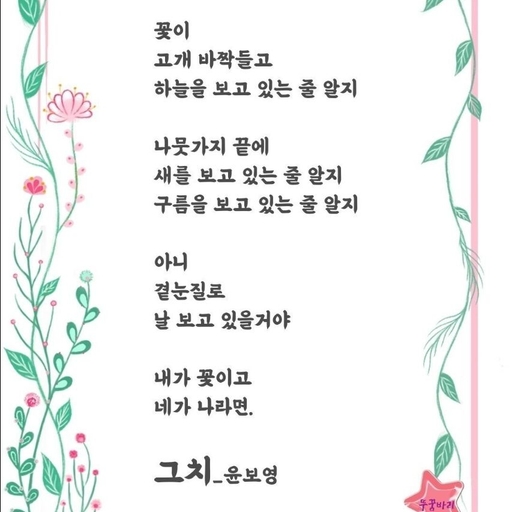 꽃이
고개 바짝들고
하늘을 보고 있는 줄 알지
나뭇가지 끝에
새를 보고 있는 줄 알지
구름을 보고 있는 줄 알지
아니
곁눈질로
날 보고 있을거야
내가 꽃이고
네가 나라면.
그치_윤보영